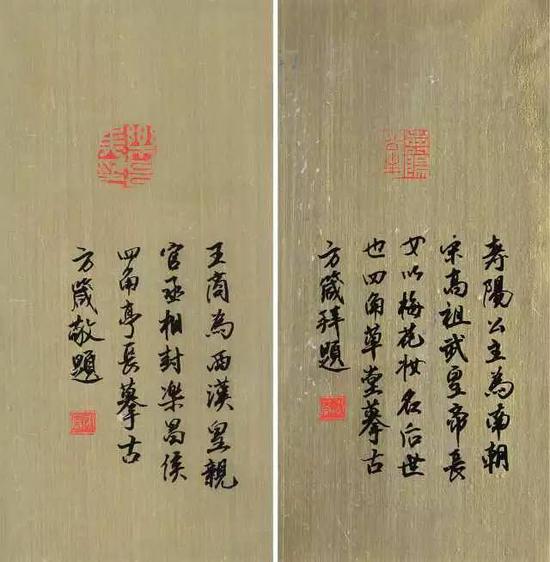 王商為西漢皇親
官丞相封楽昌侯
四角亭長摹古
方箴敬題
寿陽公主為南朝
宋高祖武皇帝長
女以梅花妝名后世
也四角草堂摹古
方箴拜題